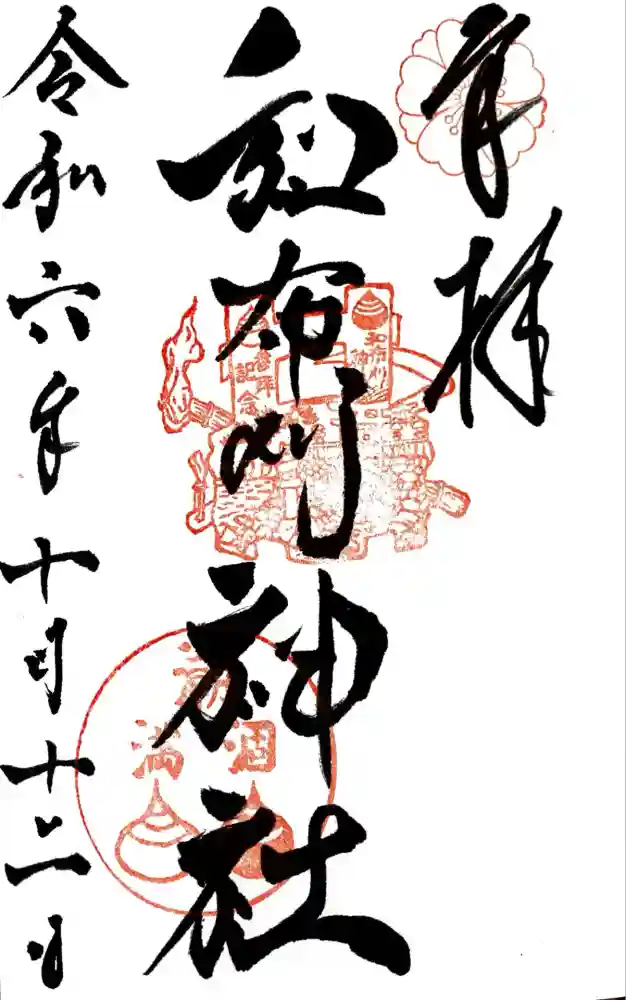 奉拝
和布刈神社
令和六年十月十二日
和布刈
神
参拝
記念
満
潤